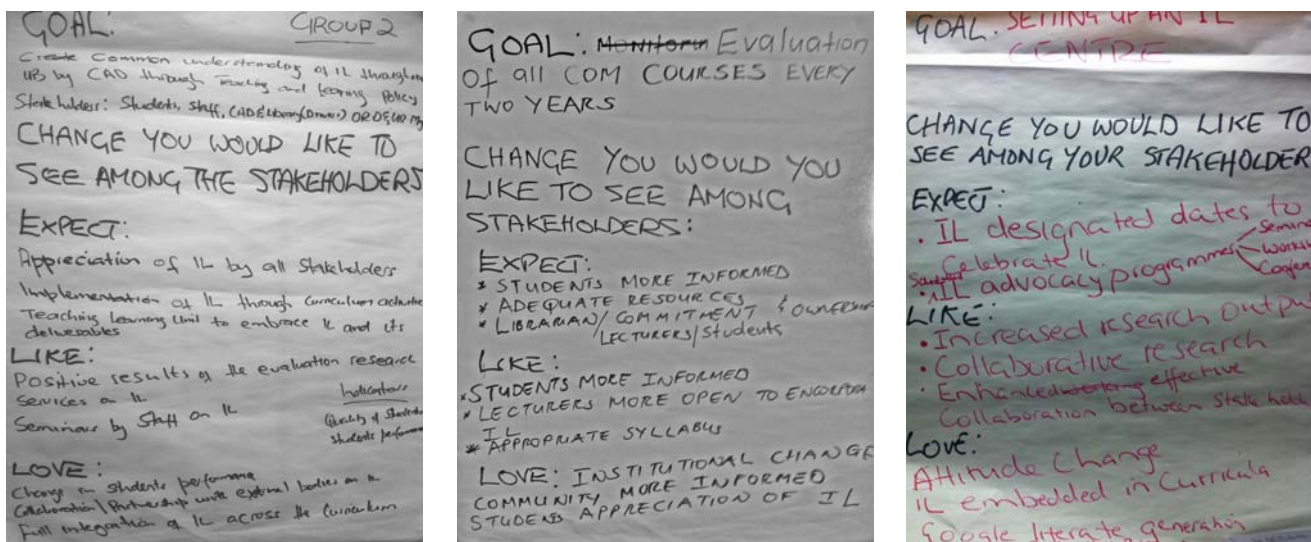 GOAL: GROUP 2
Create Common understanding of IL through
UB by CAD through Teaching and Learning Policy
Stakeholders: Students, Staff, CAD & Library (Driver) OR
CHANGE YOU WOULD LIKE TO
SEE AMONG THE STAKEHOLDERS
EXPECT:
Appreciation of IL by all Stakeholders
Implementation of IL through Curriculum
Teaching Learning Unit to embrace IL and its
deliverables
LIKE:
Positive results of the evaluation research
Services on IL
Seminars by Staff on IL
Indicators
Quality of
Students
LOVE:
Change in Students performance
Collaboration/Partnership with external bodies on IL
Full integration of IL across the Curriculum
GOAL: Evaluation
Of all COM COURSES EVERY
TWO YEARS
CHANGE YOU WOULD YOU
LIKE TO SEE AMONG
STAKEHOLDERS:
EXPECT:
* STUDENTS MORE INFORMED
* ADEQUATE RESOURCES
* LIBRARIAN/COMMITMENT &
LECTURERS/Students
LIKE:
*STUDENTS MORE INFORMED
* LECTURERS MORE OPEN TO
IL
* APPROPRIATE SYLLABUS
LOVE: INSTITUTIONAL CHANGE
COMMUNITY MORE INFORMED
STUDENTS APPRECIATION OF IL
GOAL: SETTING UP AN IL
CENTRE
CHANGE YOU WOULD LIKE TO
SEE AMONG YOUR STAKEHOLDER
EXPECT:
• IL designated dates to
Celebrate IL.
• IL advocacy programmes
LIKE:
• Increased research
• Collaborative research
• Enhanced effective
Collaboration between
LOVE:
Attitude Change
IL embedded in Curricula
Google literate generation